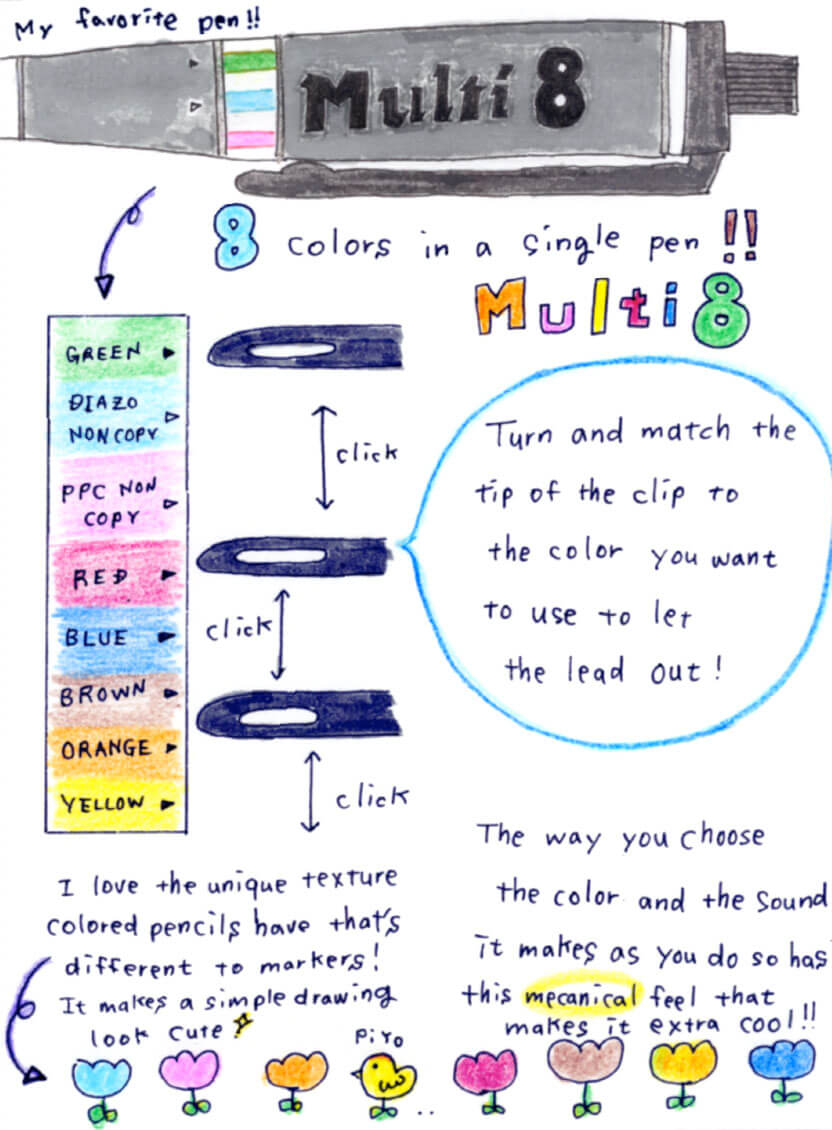 My favorite pen!!
Multi 8
8 colors in a single pen!!
Multi 8
GREEN
DIAZO
NON COPY
PPC NON
COPY
RED
BLUE
BROWN
ORANGE
YELLOW
click
click
click
Turn and match the
tip of the clip to
the color you want
to use to let
the lead out!
I love the unique texture
colored pencils have that's
different to markers!
It makes a simple drawing
look cute
The way you choose
the color and the sound
it makes as you do so has
this mecanical feel that
makes it extra cool!!
Piyo